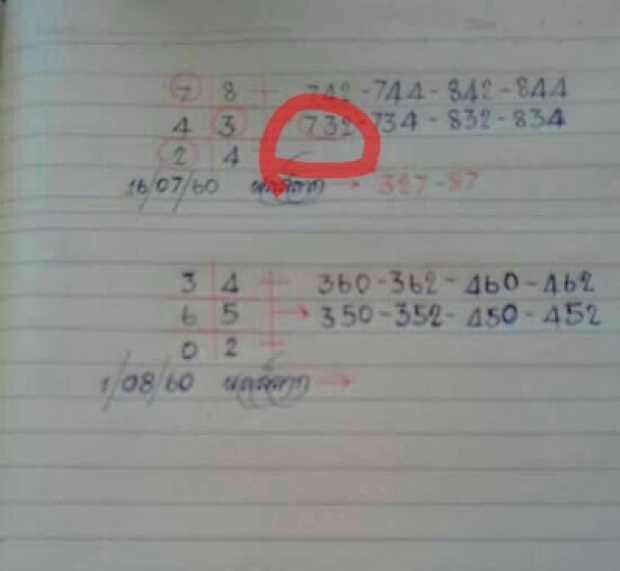 7 8 742-744-842-844
4 3 732-734-832-834
2 4
16/07/60 → 327-87
3 4 360-362-460-462
6 5 → 350-352-450-452
0 2
1/08/60 →